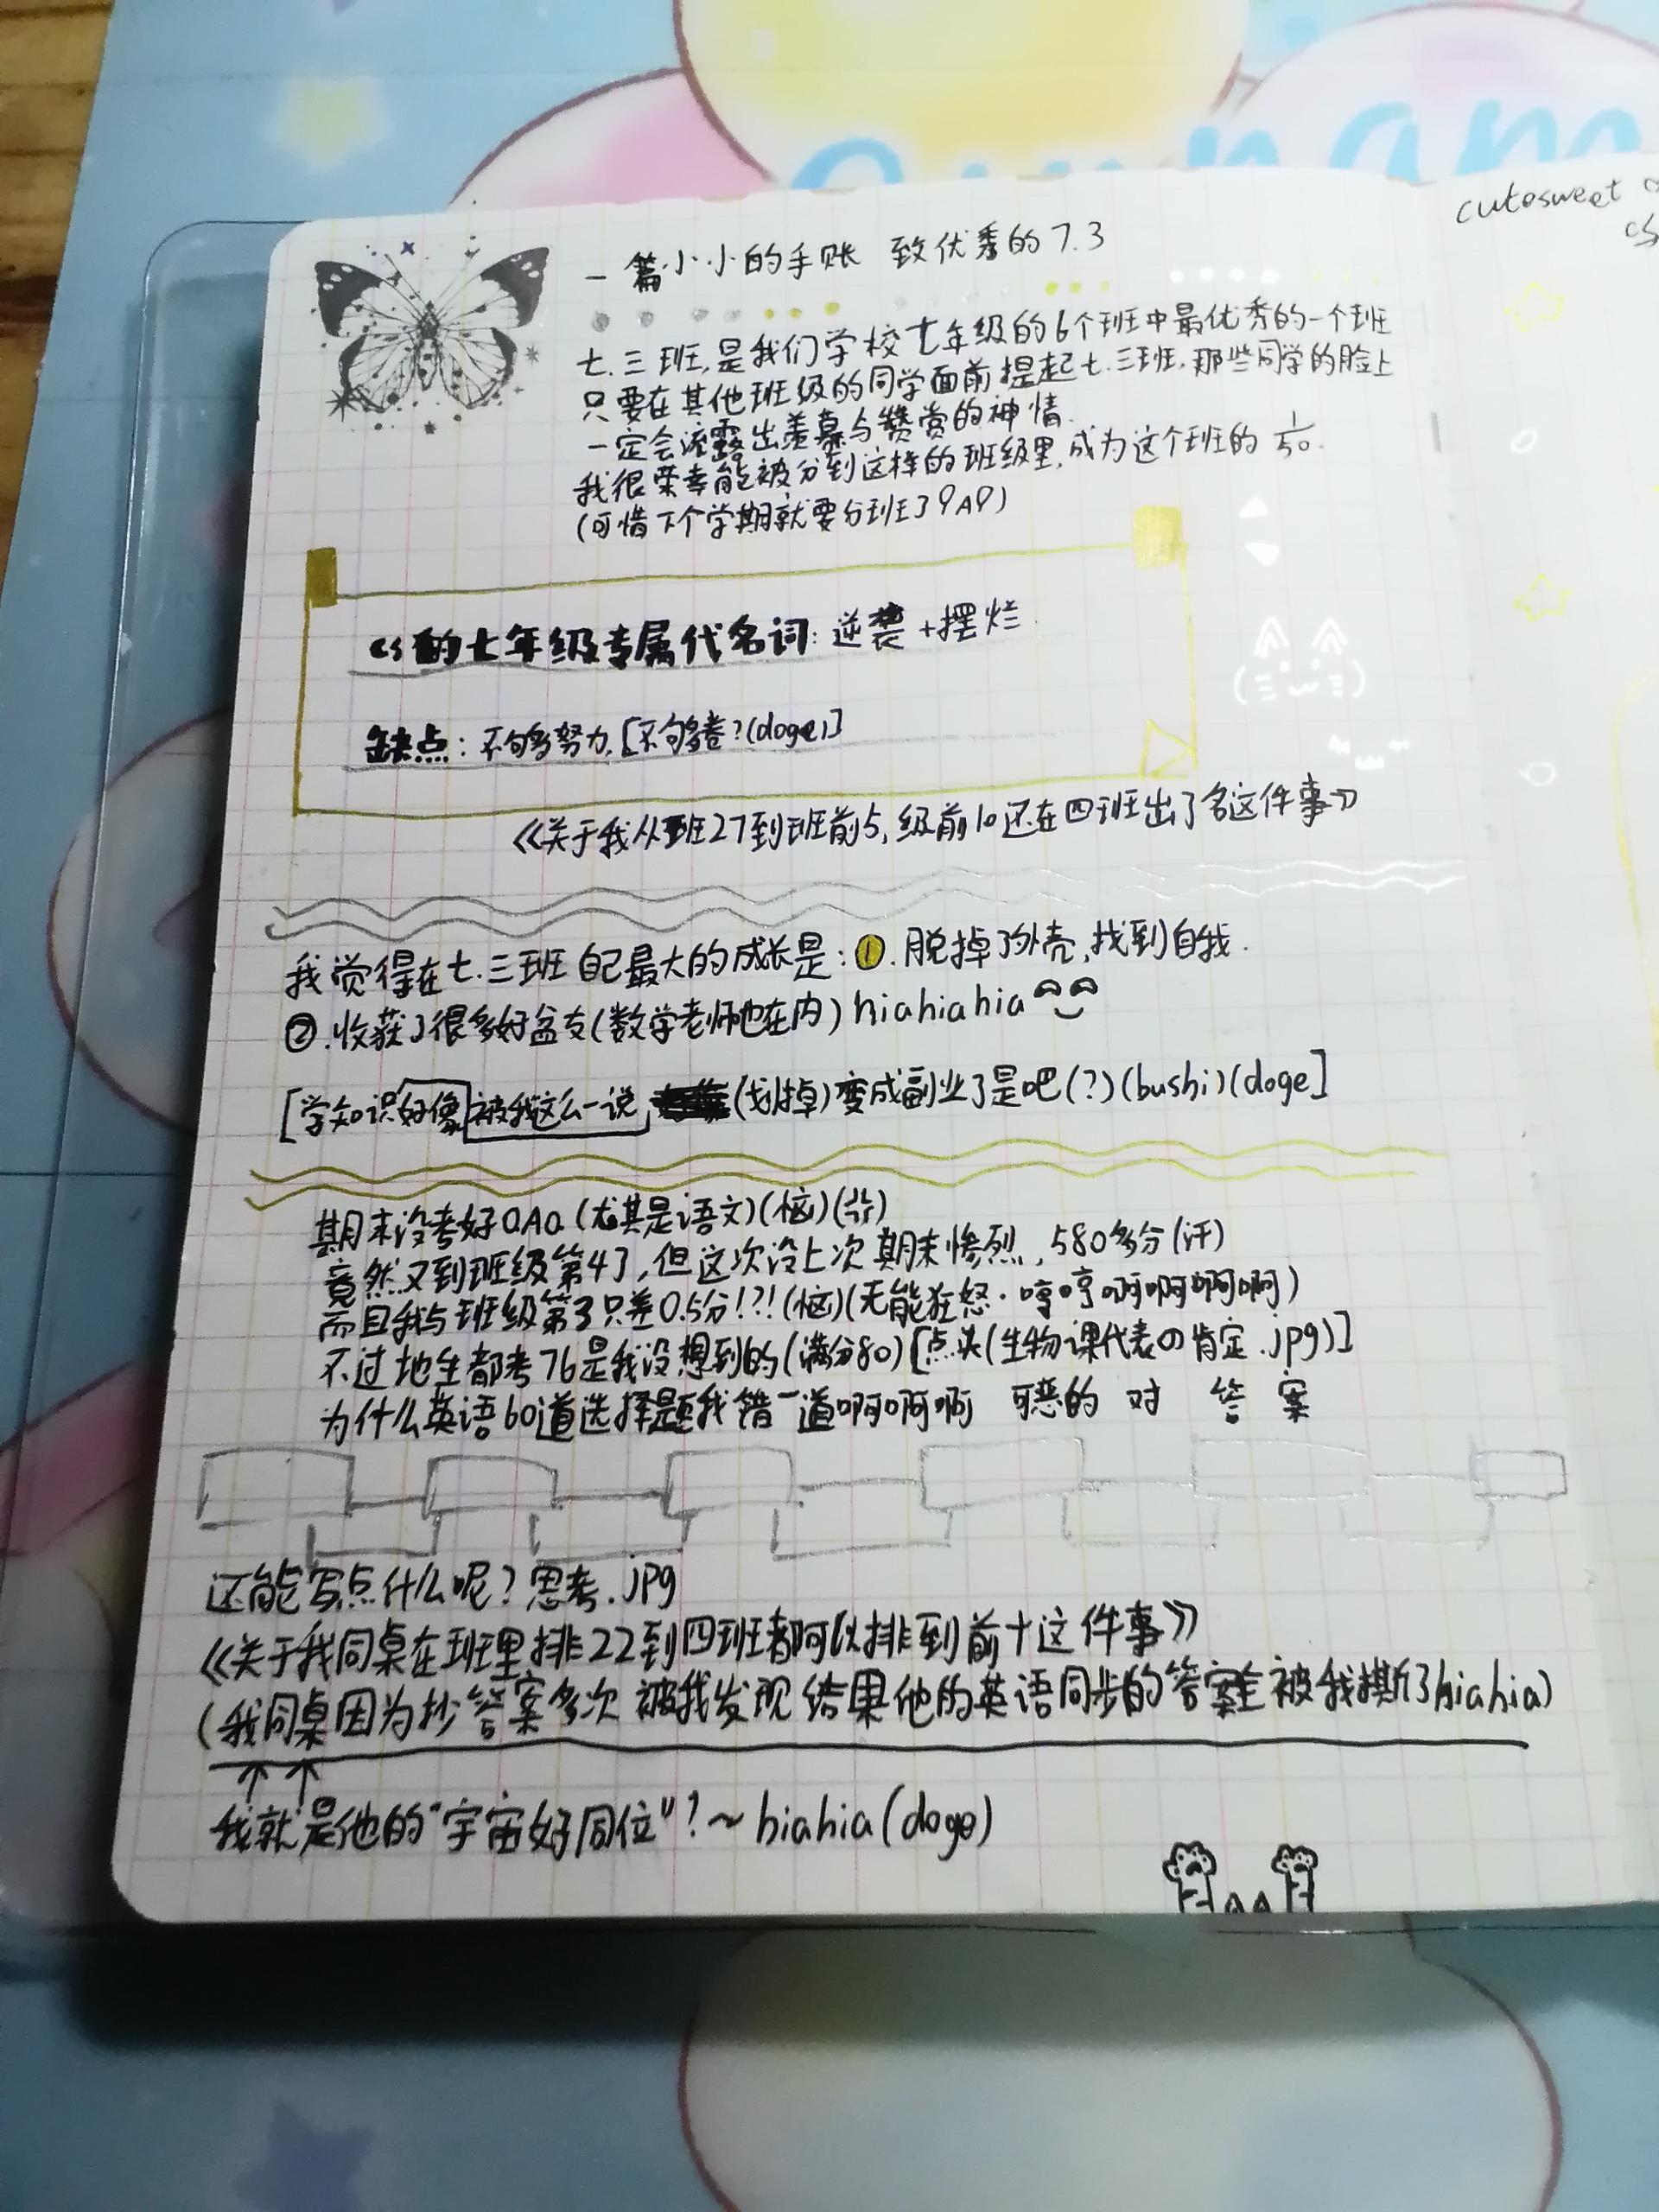 cutesweet
cs
一篇小小的手账 致优秀的7.3
七.三班,是我们学校七年级的6个班中最优秀的一个班
只要在其他班级的同学面前提起七.三班,那些同学的脸上
一定会流露出羡慕与赞赏的神情.
我很荣幸能被分到这样的班级里,成为这个班的 1/50.
(可惜下个学期就要分班了QAQ)
cs的七年级专属代名词:逆袭+摆烂
缺点:不够努力,[不够卷?(doge)]
《关于我从班27到班前5,级前10还在四班出了名这件事》
我觉得在七.三班自己最大的成长是:①.脱掉了外壳,找到自我.
②.收获了很多好盆友(数学老师也在内)hiahiahia
[学知识好像被我这么一说 (划掉)变成副业了是吧(?)(bushi)(doge]
期末没考好QAQ(尤其是语文)(恼)
竟然又到班级第4了,但这次没上次期末惨烈,580多分(汗)
而且我与班级第3只差0.5分!?!(恼)(无能狂怒·哼哼啊啊啊啊)
不过地生都考76是我没想到的(满分80)[点头(生物课代表の肯定.jpg)]
为什么英语60道选择题我错一道啊啊啊 可恶的 对 答 案
还能写点什么呢?思考.jpg
《关于我同桌在班里排22到四班都可以排到前十这件事》
(我同桌因为抄答案多次被我发现结果他的英语同步的答案全被我撕了hiahia)
我就是他的"宇宙好同位"?~hiahia(doge)